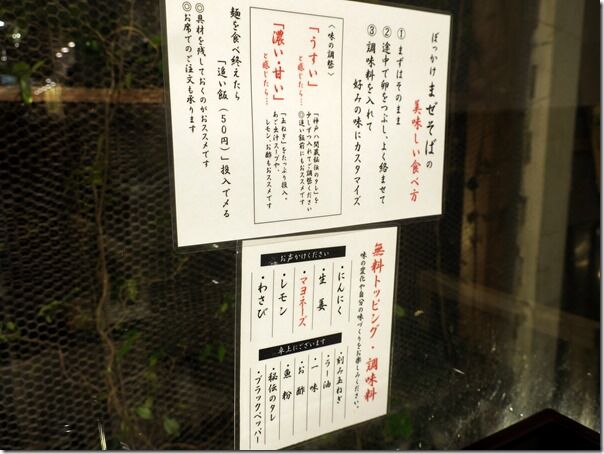 ぼっかけまぜそばの
美味しい食べ方
①まずはそのまま
②途中で卵をつぶし、よく絡ませて
③調味料を入れて
好みの味にカスタマイズ
〈味の調整〉
「うすい」
と感じたら…
「神戸八閣蔵秘伝のタレ」を
少しずつ入れてご調整ください
◎追い飯前にもおススメです
「濃い・甘い」
と感じたら…
「玉ねぎ」をたっぷり投入。
あご出汁スープや、
レモン、お酢もおススメです
麺を食べ終えたら
「追い飯（50円）」投入で〆る
◎具材を残しておくのがおススメです
◎お席でのご注文も承ります
無料トッピング・調味料
味の変化や自分の味づくりをお楽しみください。
お声かけください
・にんにく
・生姜
・マヨネーズ
・レモン
・わさび
卓上にございます
・刻み玉ねぎ
・ラー油
・一味
・お酢
・魚粉
・秘伝のタレ
・ブラックペッパー